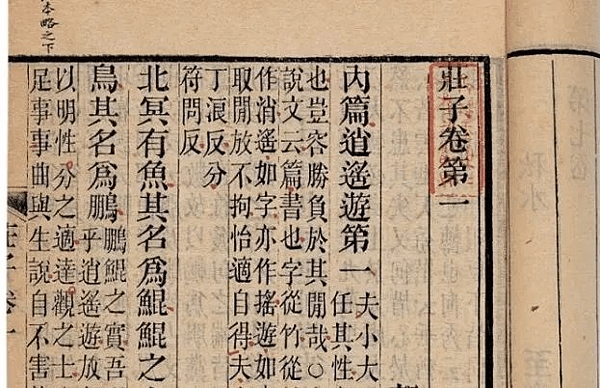 本略之下
莊子卷第一
內篇逍遙遊第一
夫小大
任其性
也豈容勝負於其閒哉○
說文云篇書也字從竹從
作消遙如字亦作搖遊如
取閒放不拘怡適自得夫
丁浪反分
符問反
北冥有魚其名爲鯤鯤之
鳥其名爲鵬
鵬鯤之實吾
乎逍遙遊放
以明性分之適達觀之士
足事事曲與生說自不害